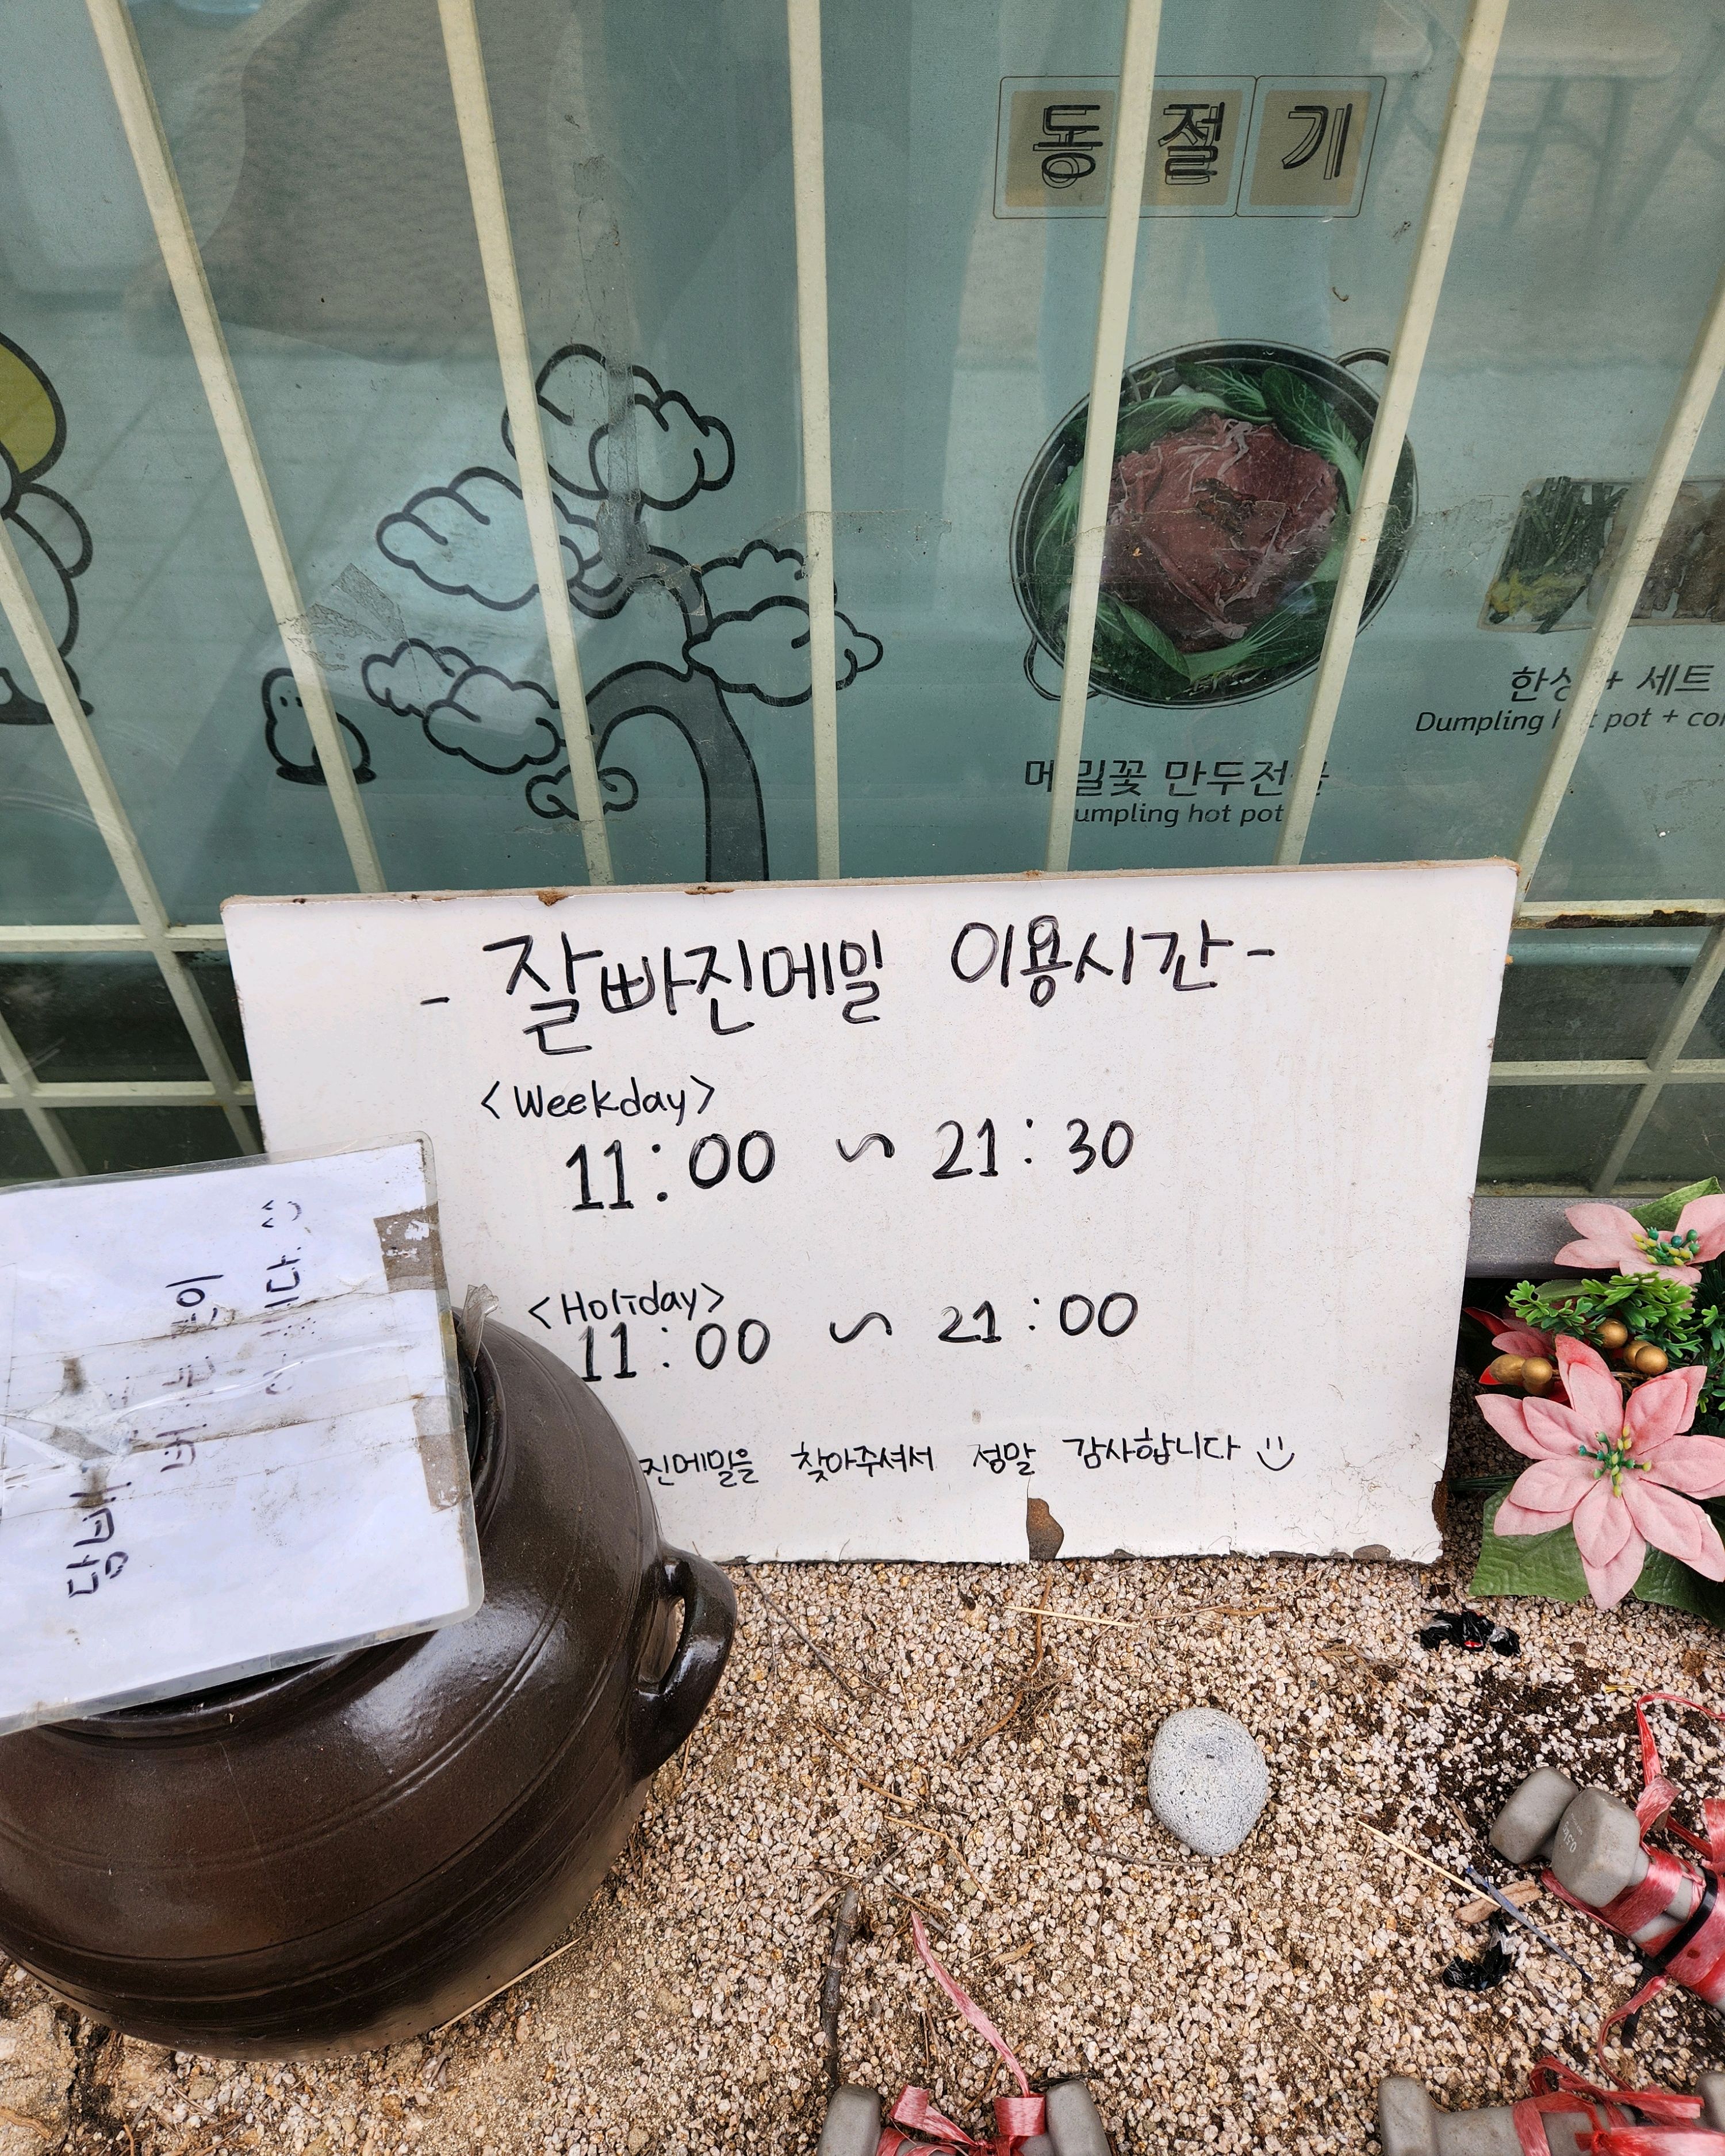 동절기
한상 + 세트
Dumpling hot pot +
메밀꽃 만두전골
Dumpling hot pot
- 잘빠진메밀 이용시간 -
<Weekday>
11:00 ~ 21:30
<Holiday>
11:00 ~ 21:00
진메밀을 찾아주셔서 정말 감사합니다
담배